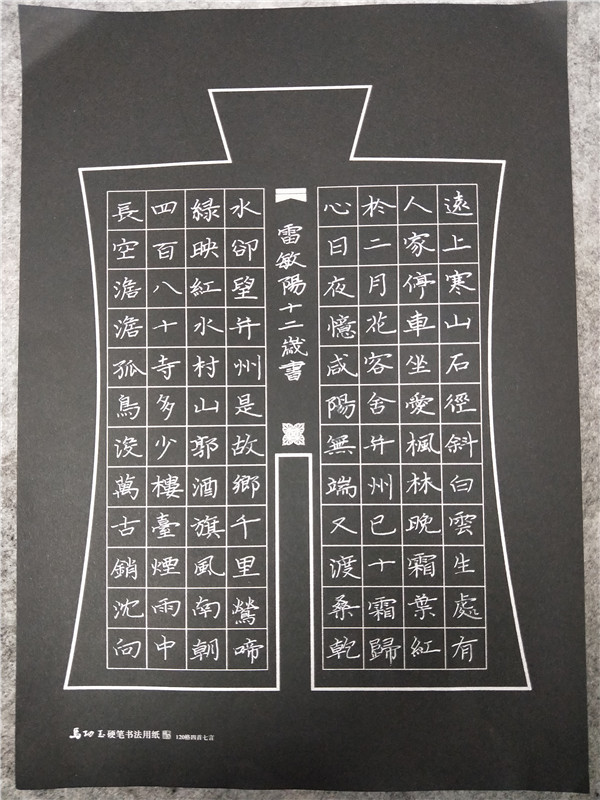 遠上寒山石徑斜白雲生處有
人家停車坐愛楓林晚霜葉紅
於二月花客舍并州已十霜歸
心日夜憶咸陽無端又渡桑乾
雷敏陽十二歲書
水卻望并州是故鄉千里鶯啼
綠映紅水村山郭酒旗風南朝
四百八十寺多少樓臺煙雨中
長空澹澹孤鳥沒萬古銷沈向
硬笔书法用纸 120格四首七言